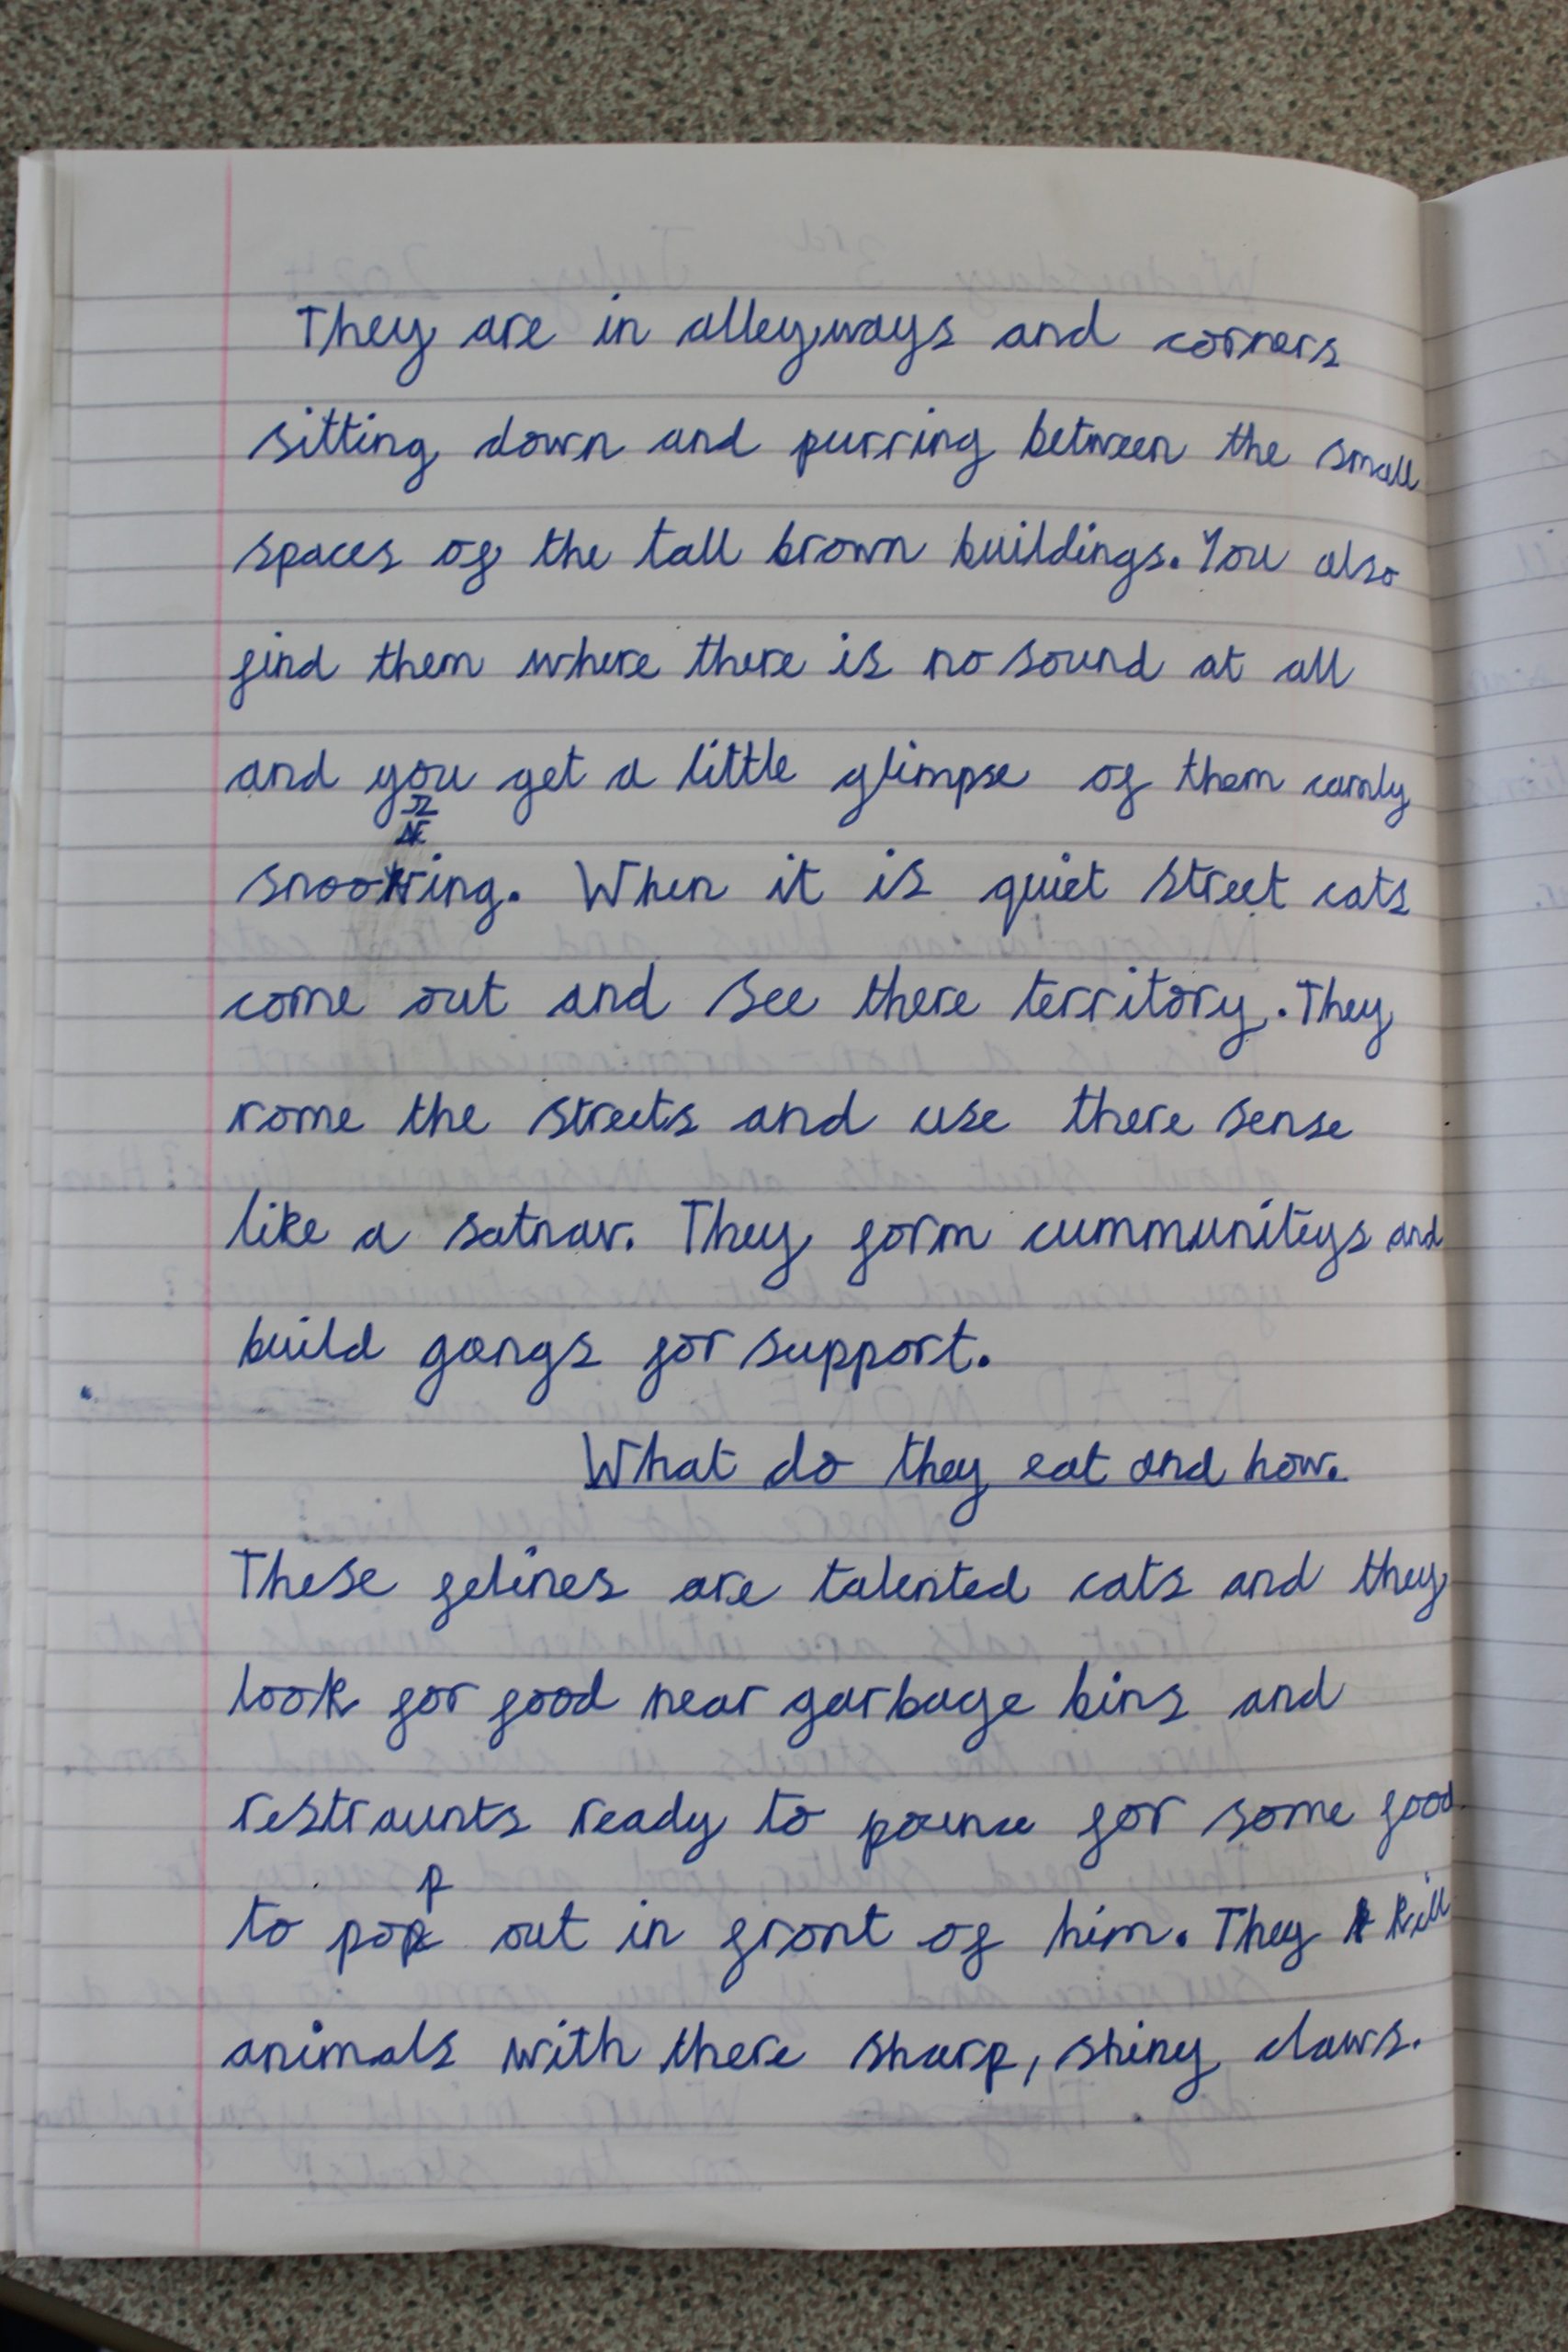 They are in alleyways and corners
sitting down and purring between the small
spaces of the tall brown buildings. You also
find them where there is no sound at all
and you get a little glimpse of them camly
snooring. When it is quiet street cats
come out and see there territory. They
rome the streets and use there sense
like a satnav. They form cummuniteys and
build gangs for support.
What do they eat and how.
These felines are talented cats and they
look for food near garbage bins and
restraunts ready to pounce for some food
to pop out in front of him. They kill
animals with there sharp, shiny claws.